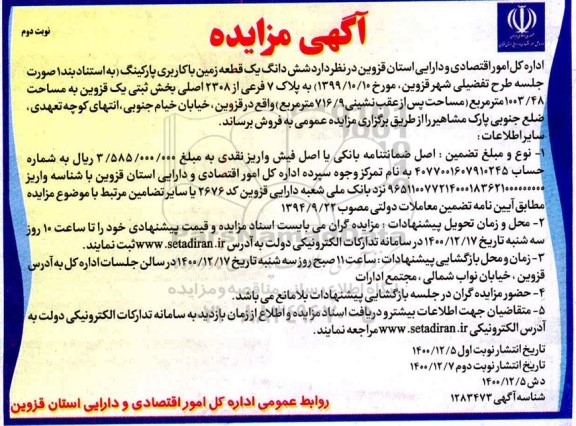 آگهی مزایده
نوبت دوم
اداره کل امور اقتصادی و دارایی استان قزوین در نظر دارد شش دانگ یک قطعه زمین با کاربری پارکینگ (به استناد بند ۱ صورت
جلسه طرح تفضیلی شهر قزوین، مورخ ۱۳۹۹/۱۰/۱۰) به پلاک ۷ فرعی از ۲۳۰۸ اصلی بخش ثبتی یک قزوین به مساحت
۱۰۰۳/۴۸ مترمربع (مساحت پس از عقب نشینی ۷۱۶/۹ مترمربع) واقع در قزوین، خیابان خیام جنوبی، انتهای کوچه تعهدی،
ضلع جنوبی پارک مشاهیر را از طریق برگزاری مزایده عمومی به فروش برساند.
سایر اطلاعات:
۱- نوع و مبلغ تضمین: اصل ضمانتنامه بانکی یا اصل فیش واریز نقدی به مبلغ ۳/۵۸۵/۰۰۰/۰۰۰ ریال به شماره
حساب ۴۰۷۷۰۰۱۶۰۷۹۱۰۲۴۵ به نام تمرکز وجوه سپرده اداره کل امور اقتصادی و دارایی استان قزوین با شناسه واریز
نزد بانک ملی شعبه دارایی قزوین کد ۲۶۷۶ یا سایر تضامین مرتبط با موضوع مزایده
مطابق آیین نامه تضمین معاملات دولتی مصوب ۱۳۹۴/۹/۲۲
۲- محل و زمان تحویل پیشنهادات: مزایده گران می بایست اسناد مزایده و قیمت پیشنهادی خود را تا ساعت ۱۰ روز
سه شنبه تاریخ ۱۴۰۰/۱۲/۱۷ در سامانه تدارکات الکترونیکی دولت به آدرس www.setadiran.ir ثبت نمایند.
۳- زمان و محل بازگشایی پیشنهادات: ساعت ۱۱ صبح روز سه شنبه تاریخ ۱۴۰۰/۱۲/۱۷ در سالن جلسات اداره کل به آدرس
قزوین، خیابان نواب شمالی، مجتمع ادارات
۴- حضور مزایده گران در جلسه بازگشایی پیشنهادات بلامانع می باشد.
۵- متقاضیان جهت اطلاعات بیشتر و دریافت اسناد مزایده و اطلاع از زمان بازدید به سامانه تدارکات الکترونیکی دولت به
آدرس الکترونیکی www.setadiran.ir مراجعه نمایند.
تاریخ انتشار نوبت اول ۱۴۰۰/۱۲/۵
تاریخ انتشار نوبت دوم ۱۴۰۰/۱۲/۷
دش ۱۴۰۰/۱۲/۵
شناسه آگهی ۱۲۸۳۴۷۳
روابط عمومی اداره کل امور اقتصادی و دارایی استان قزوین